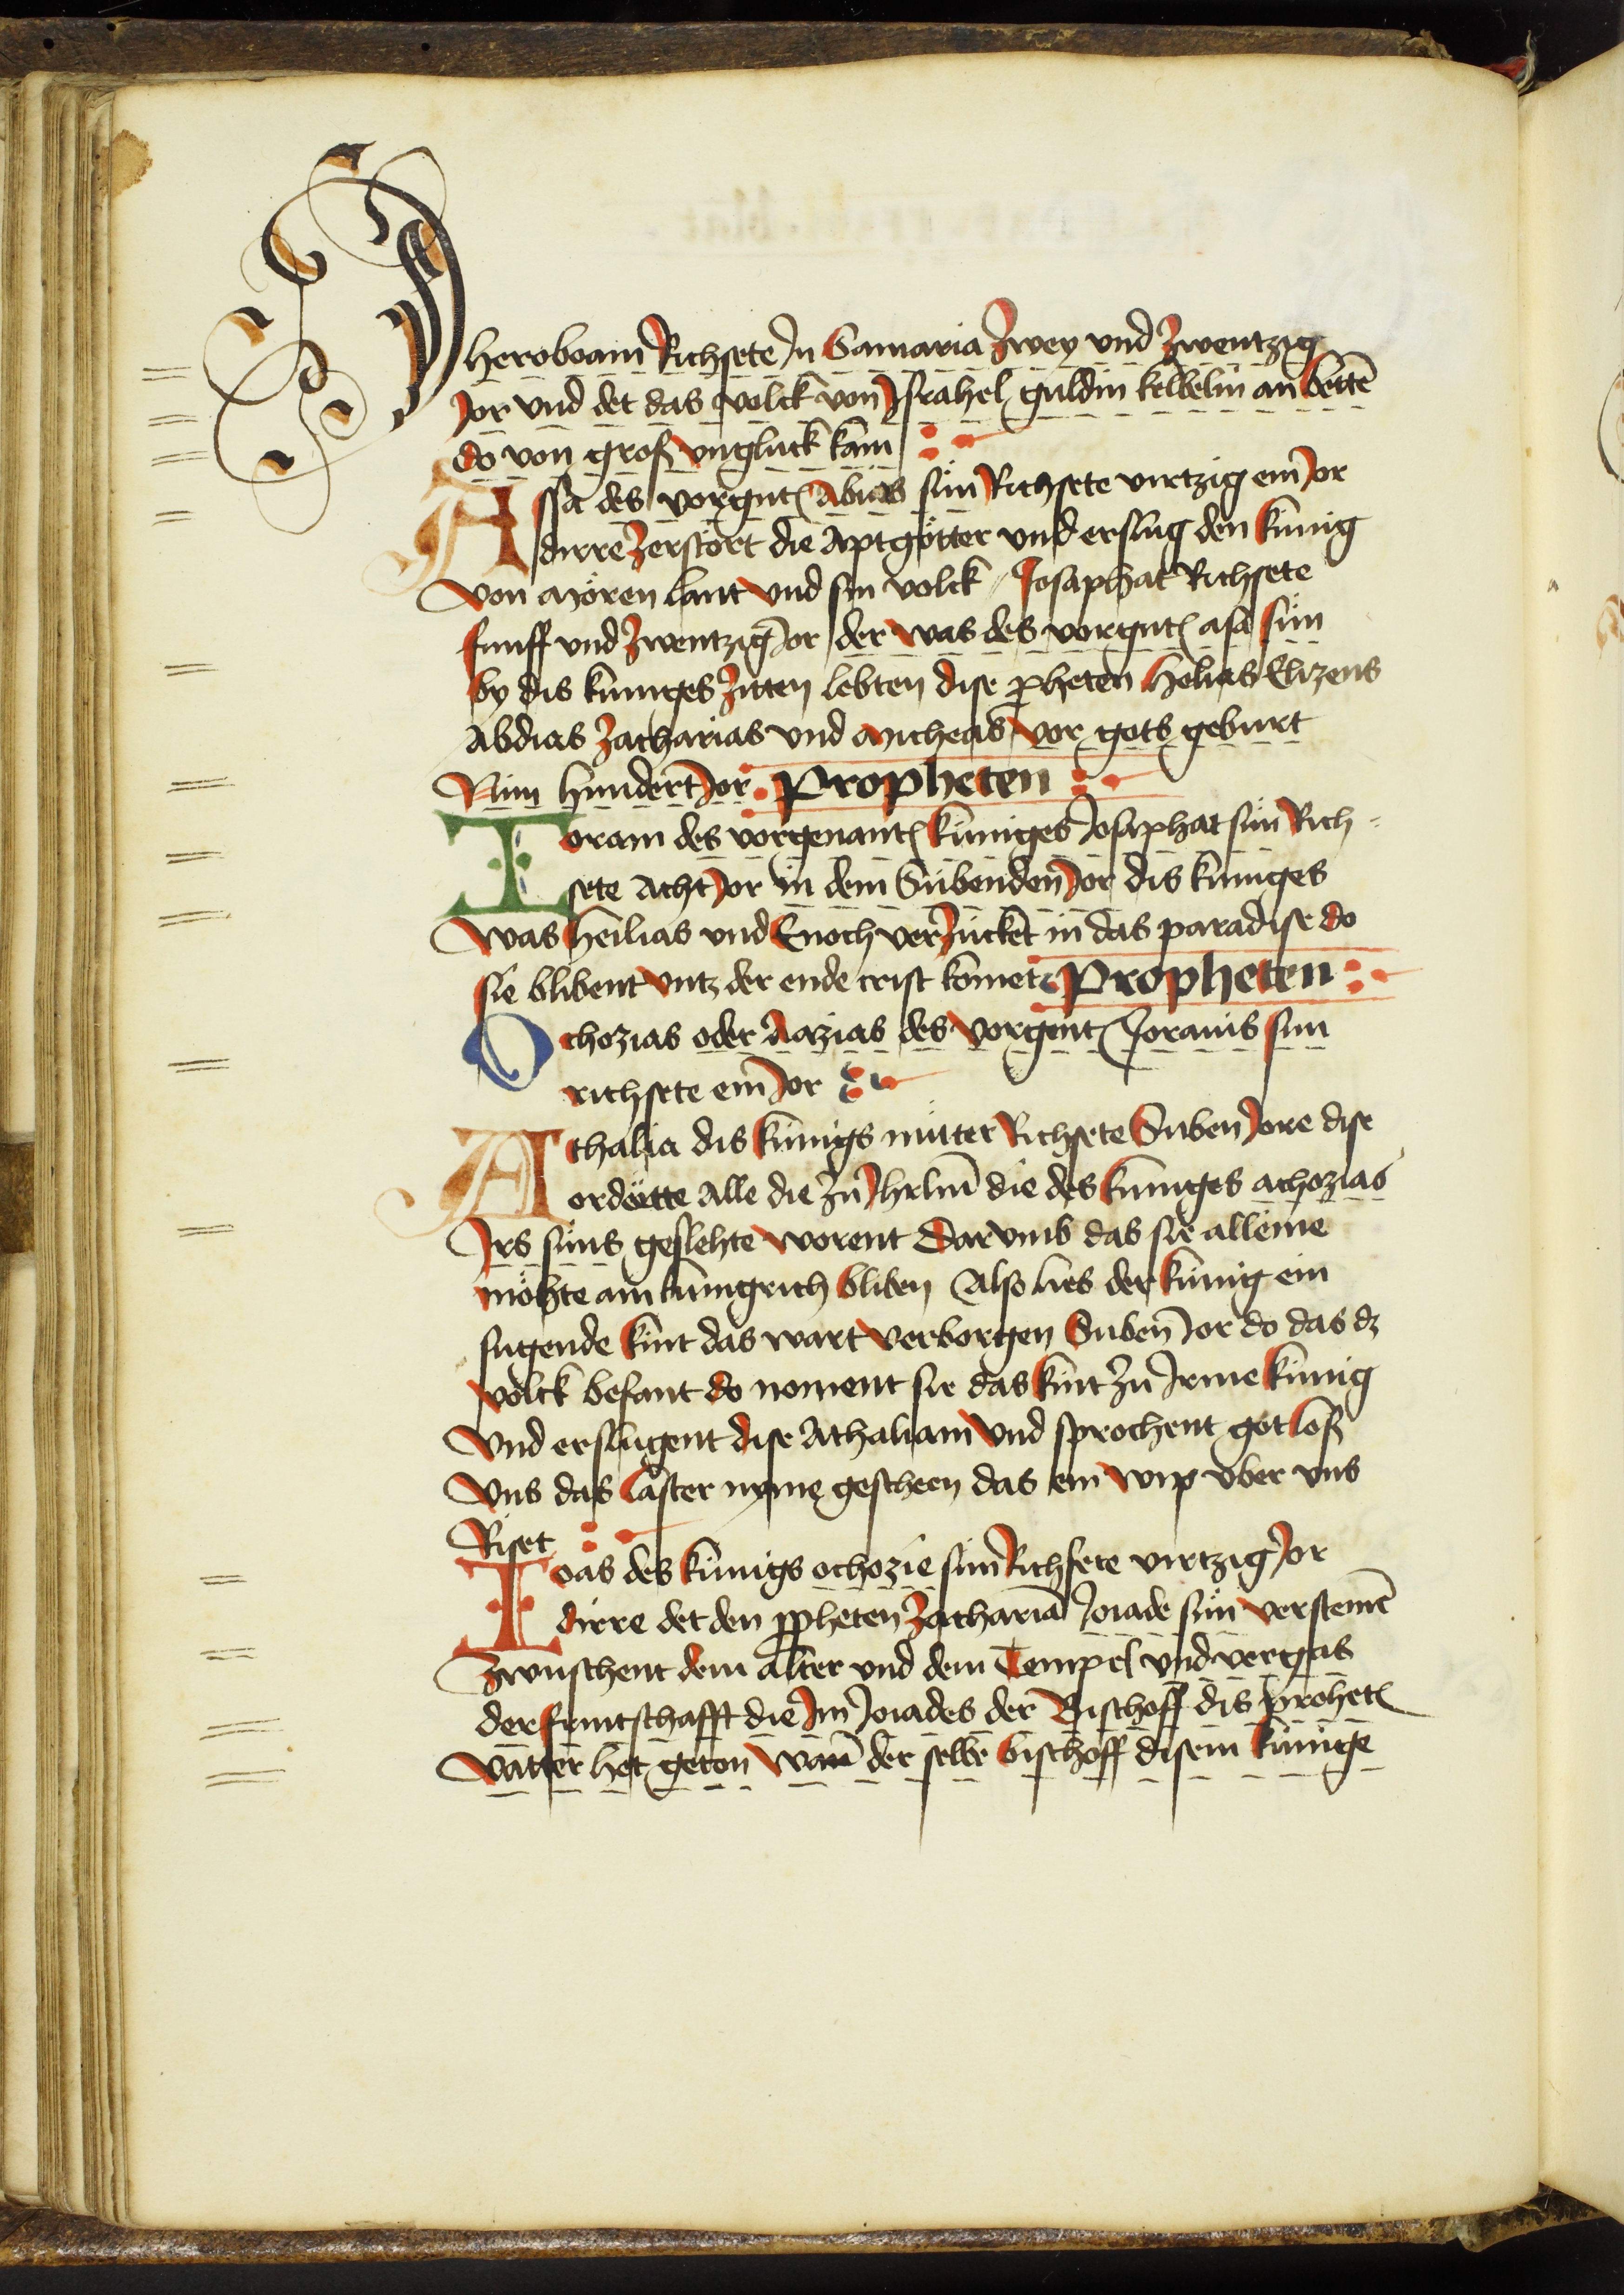 Jheroboam Richsete In Samaria Zwey vnd Zwentzig
Jor vnd det das volck von Jsrahel guldin kelbelin an bettē
do von groß vngluck kam
Assa des vorgnt(̄ Abias sün Richsete virtzig ein Jor
dirre Zerstört die Aptgötter vnd erslug den künig
von Mören lant vnd sin volck Josaphat Richsete
funff vnd Zwentzig Jor der was des vorgnt(̄ asa sün
by dis küniges Zitten lebten dise ꝓheten Helias Elizeus
Abdias Zacharias vnd Micheas vor gots geburt
Nün hundert Jor Propheten
Joram des vorgenant(̄ küniges Josaphat sün Rich-
sete Acht Jor in dem Sübenden Jor dis küniges
Was Heilias vnd Enoch verZucket in das paradise do
sie blibent vntz der ende crist komet Propheten
Ochozias oder Aazias des vorgent(̄ Jorams sün
richsete ein Jor
Athalia dis künigs müter Richsete Süben Jore dise
ordötte Alle die zü Jhrlm̄ die des küniges achozias
Jrs süns geslehte worent Dar vmb das sie alleine
möhte am künigrich bliben Also lies der künig ein
sugende kint das wart verborgen Süben Jor do das dz
volck befant do noment sie das kint zü Irme künig
Vnd erslugent dise Athaliam Vnd sprochent got loß
Vns das laster nyme gescheen das ein wip vber vns
Riset
Joas des künigs ochozie sün Richsete virtzig Jor
dirre det den ꝓpheten Zachariā Joiade sün versteinē
Zwüschent dem alter vnd dem Tempel vnd vergas
der früntschafft die Im Joiades der Bischoff dis prohet(̄
vatter het geton Wan̄ der selbe bischoff disem künige